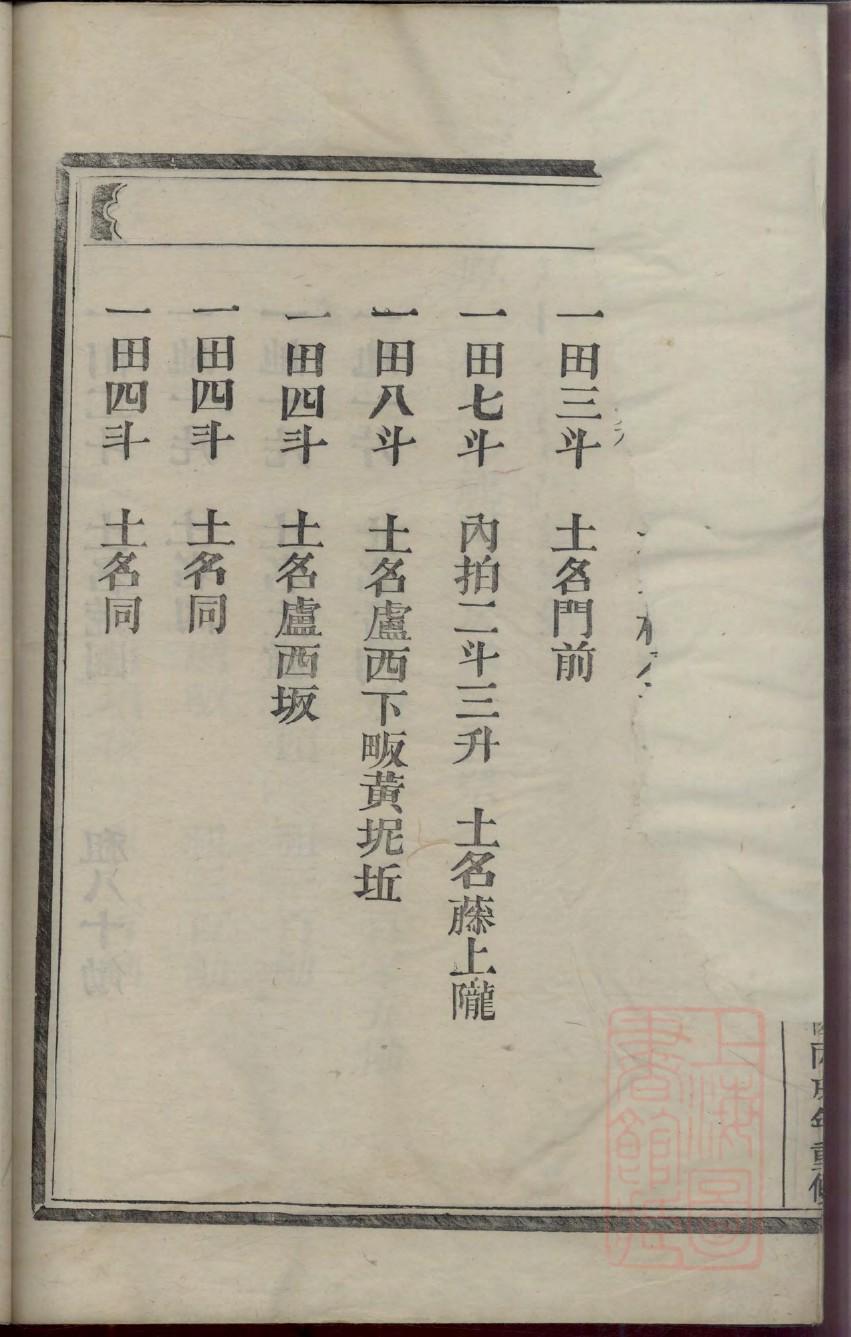 一田三斗　土名門前
一田七斗　內拍二斗三升　土名藤上隴
一田八斗　土名盧西下畈黃坭坵
一田四斗　土名盧西坂
一田四斗　土名同
一田四斗　土名同
年重修
上海圖
書館藏